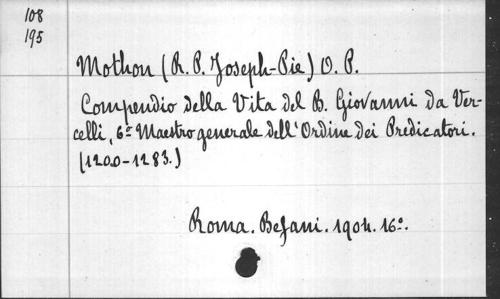 108
195
Mothon (R. P. Joseph-Pie) O. P.
Compendio della Vita del B. Giovanni da Ver-
celli, 6º Maestro generale dell'Ordine dei Predicatori.
(1200-1283.)
Roma. Befani. 1904. 16º.